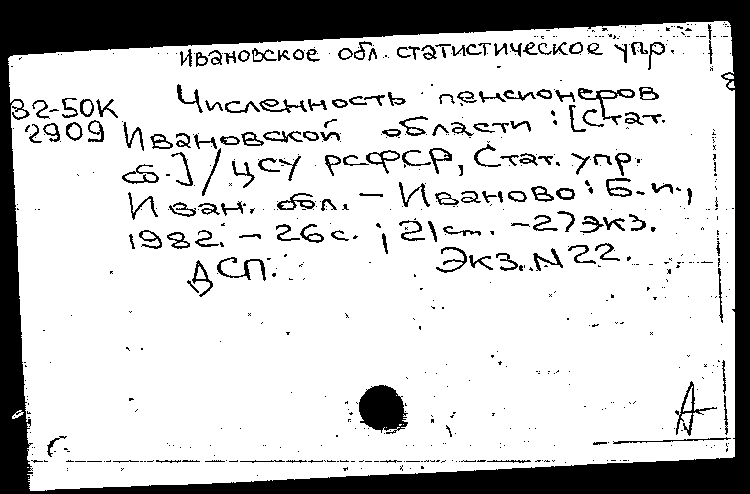 Ивановское обл. статистическое упр.
82-50К Численность пенсионеров
2909 Ивановской области: [Стат.
сб.] / ЦСУ РСФСР, Стат. упр.
Иван. обл. - Иваново: Б.и.,
1982. - 26 с.; 21 см. - 27 экз.
ДСП. Экз. N 22.
А